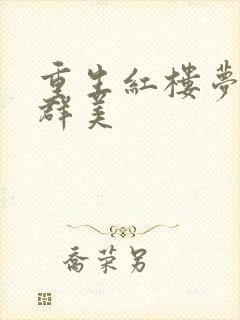 重生紅樓夢
群美
喬榮另